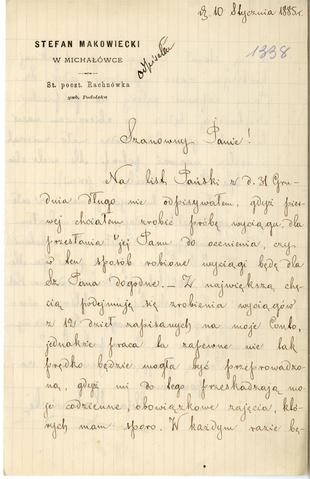 d. 10 Stycznia 1885 r.
1338
STEFAN MAKOWIECKI
W MICHAŁÓWCE
odpisałem
St. poczt. Rachnówka
gub. Podolska
Szanowny Panie!
Na list Pański z d. 31 Gru-
dnia długo nie odpisywałem, gdyż pier-
wej chciałem zrobić próbę wyciągu, dla
przesłania jej Panu do ocenienia, czy
w ten sposób robione wyciągi będą dla
Sz. Pana dogodne. — Z największą chę-
cią podejmuję się zrobienia wyciągów
z 12 dzieł zapisanych na moje Conto,
jednakże praca ta zapewne nie tak
prędko będzie mogła być przeprowadzo-
ną, gdyż mi do tego przeszkadzają mo-
je codzienne, obowiązkowe zajęcia, któ-
rych mam sporo. W każdym razie bę-